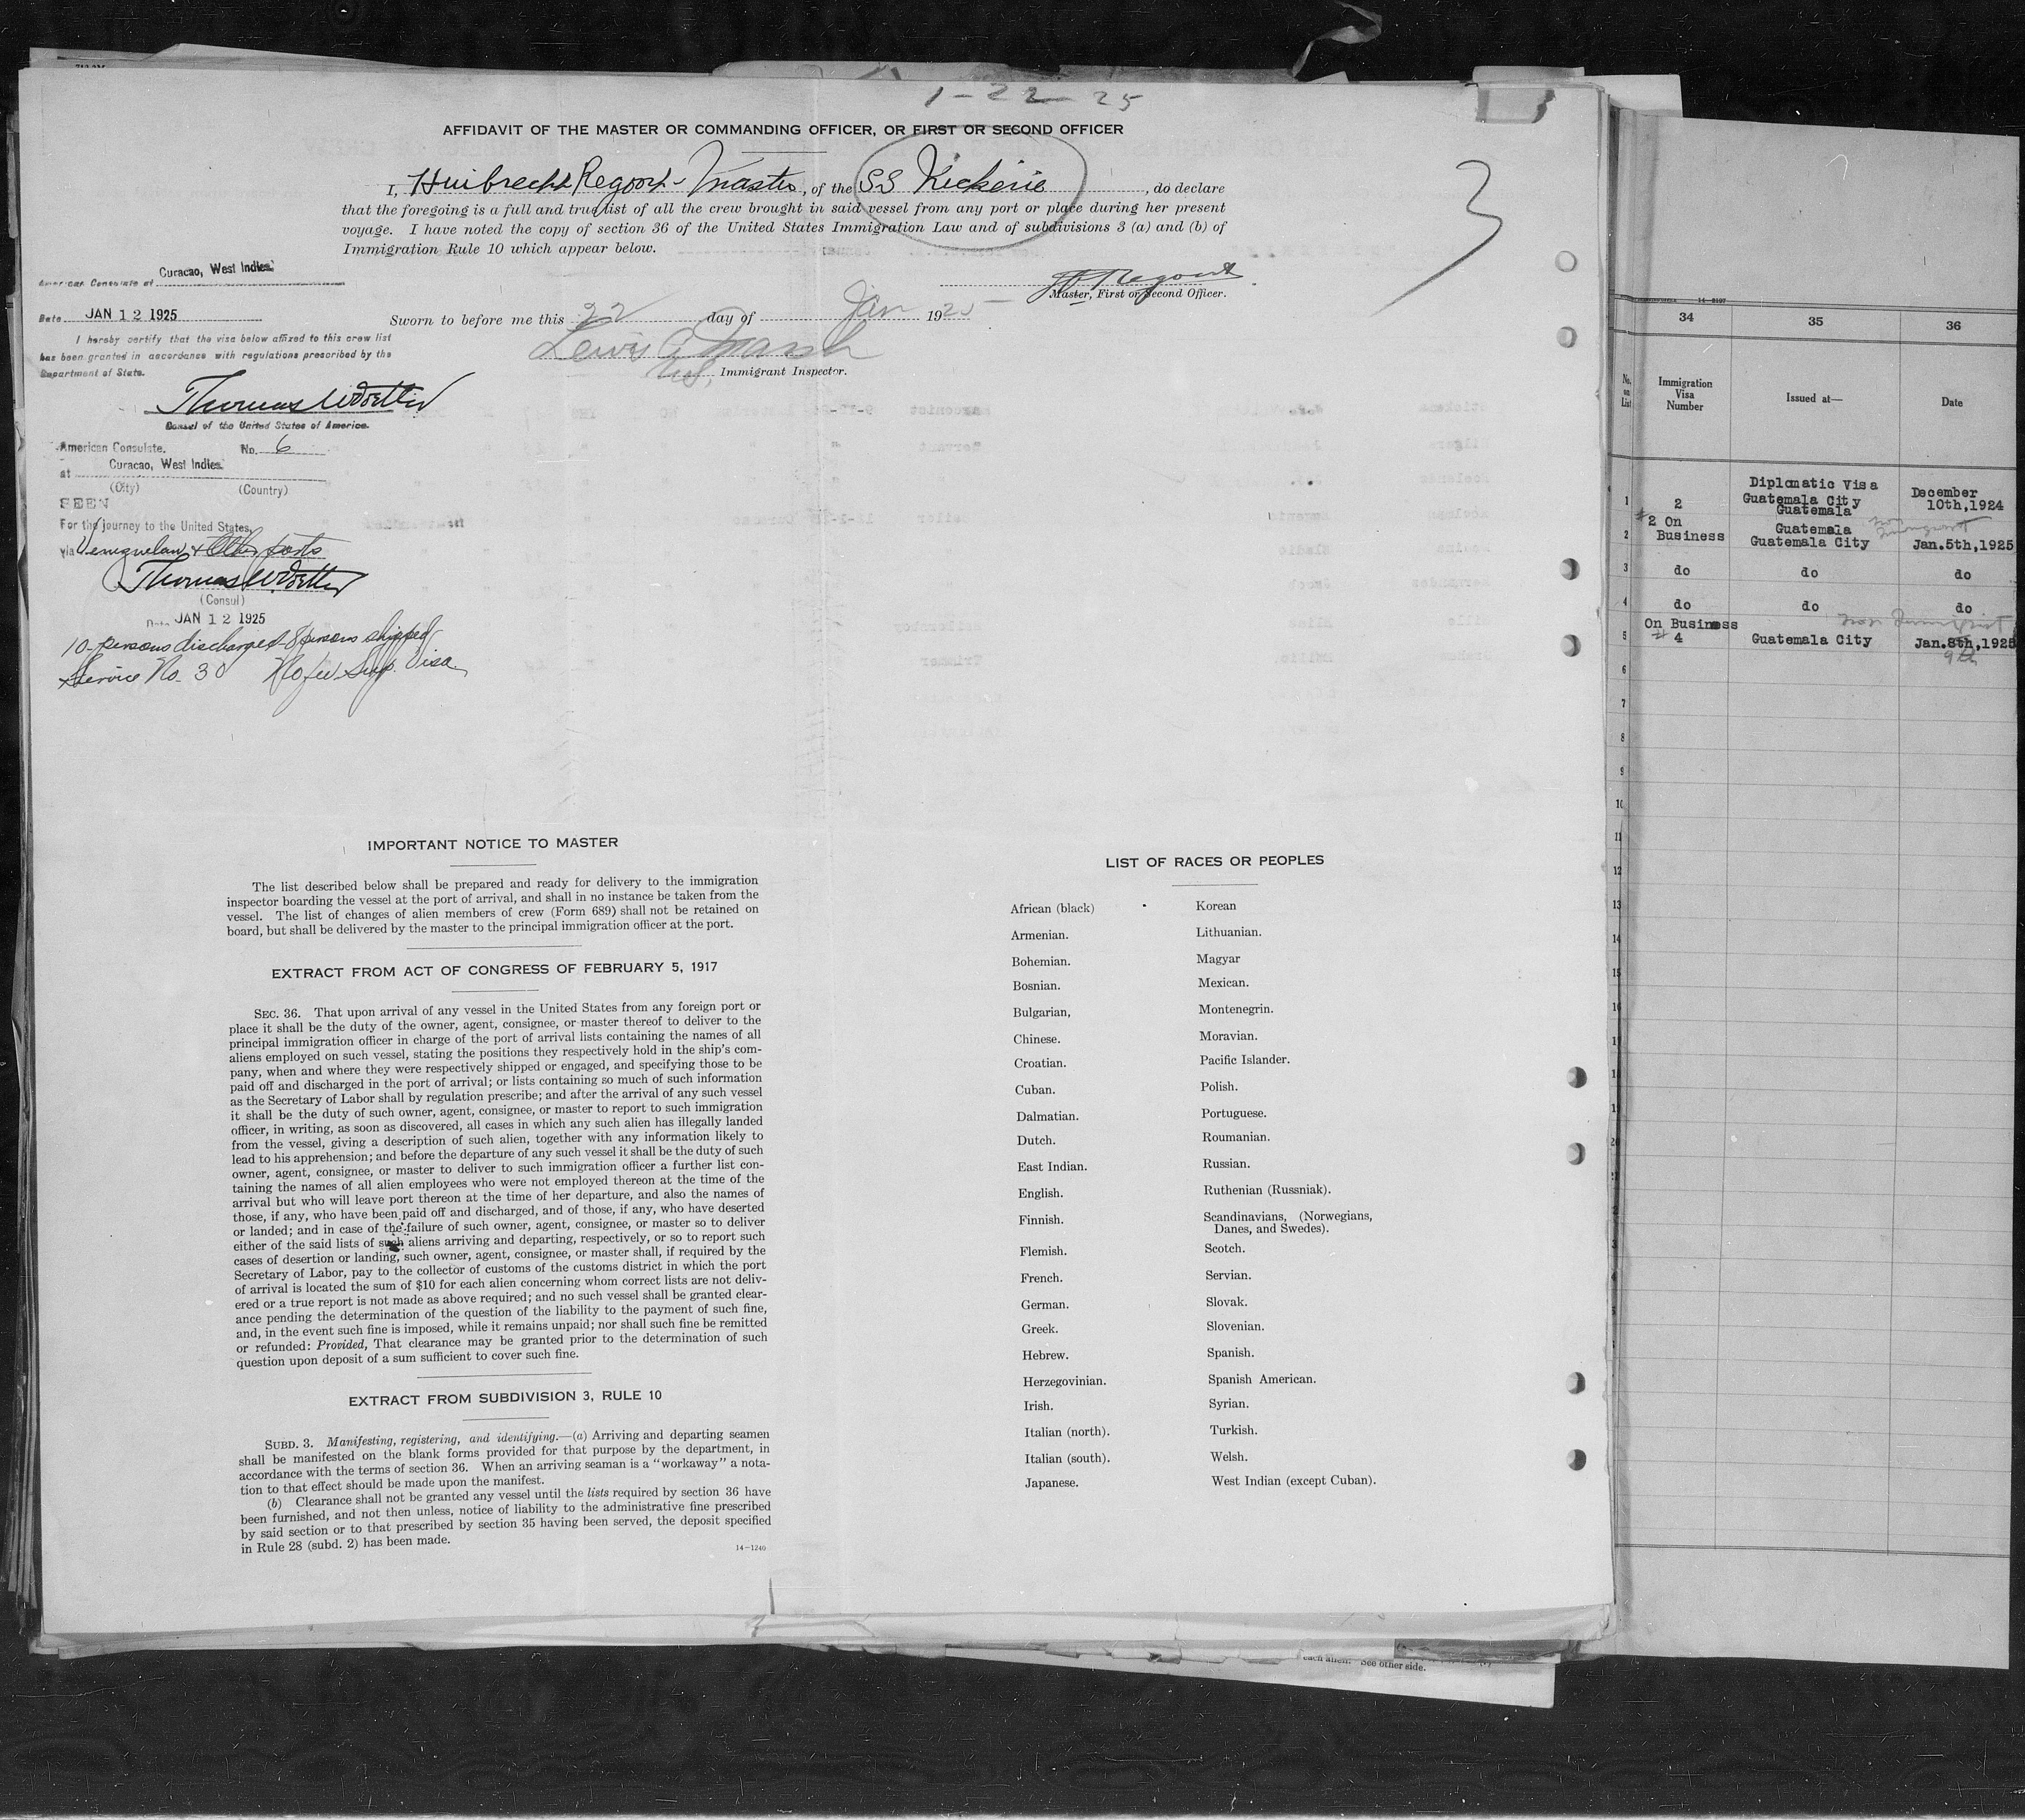 1-22-25
AFFIDAVIT OF THE MASTER OR COMMANDING OFFICER, OR FIRST OR SECOND OFFICER
I, Huibrecht Regoort - Master, of the SS Nickerie, do declare
that the foregoing is a full and true list of all the crew brought in said vessel from any port or place during her present
voyage. I have noted the copy of section 36 of the United States Immigration Law and of subdivisions 3 (a) and (b) of
Immigration Rule 10 which appear below.
3
H Regoort
Master, First or Second Officer.
Sworn to before me this 22 day of Jan 1925
Lewis A Marsh
Immigrant Inspector.
American Consulate at Curacao, West Indies.
Date JAN 12 1925
I hereby certify that the visa below affixed to this crew list
has been granted in accordance with regulations prescribed by the
Department of State.
Thomas W Voetter
Consul of the United States of America.
American Consulate. No. 6
at Curacao, West Indies.
(City) (Country)
SEEN
For the journey to the United States,
via Venezuelan & Other ports
Thomas W Voetter
(Consul)
Date JAN 12 1925
10 persons discharged 8 persons shipped
Service No. 30 No fee Sup. Visa
IMPORTANT NOTICE TO MASTER
The list described below shall be prepared and ready for delivery to the immigration
inspector boarding the vessel at the port of arrival, and shall in no instance be taken from the
vessel. The list of changes of alien members of crew (Form 689) shall not be retained on
board, but shall be delivered by the master to the principal immigration officer at the port.
EXTRACT FROM ACT OF CONGRESS OF FEBRUARY 5, 1917
SEC. 36. That upon arrival of any vessel in the United States from any foreign port or
place it shall be the duty of the owner, agent, consignee, or master thereof to deliver to the
principal immigration officer in charge of the port of arrival lists containing the names of all
aliens employed on such vessel, stating the positions they respectively hold in the ship's com-
pany, when and where they were respectively shipped or engaged, and specifying those to be
paid off and discharged in the port of arrival; or lists containing so much of such information
as the Secretary of Labor shall by regulation prescribe; and after the arrival of any such vessel
it shall be the duty of such owner, agent, consignee, or master to report to such immigration
officer, in writing, as soon as discovered, all cases in which any such alien has illegally landed
from the vessel, giving a description of such alien, together with any information likely to
lead to his apprehension; and before the departure of any such vessel it shall be the duty of such
owner, agent, consignee, or master to deliver to such immigration officer a further list con-
taining the names of all alien employees who were not employed thereon at the time of the
arrival but who will leave port thereon at the time of her departure, and also the names of
those, if any, who have been paid off and discharged, and of those, if any, who have deserted
or landed; and in case of the failure of such owner, agent, consignee, or master so to deliver
either of the said lists of such aliens arriving and departing, respectively, or so to report such
cases of desertion or landing, such owner, agent, consignee, or master shall, if required by the
Secretary of Labor, pay to the collector of customs of the customs district in which the port
of arrival is located the sum of $10 for each alien concerning whom correct lists are not deliv-
ered or a true report is not made as above required; and no such vessel shall be granted clear-
ance pending the determination of the question of the liability to the payment of such fine,
and, in the event such fine is imposed, while it remains unpaid; nor shall such fine be remitted
or refunded: Provided, That clearance may be granted prior to the determination of such
question upon deposit of a sum sufficient to cover such fine.
EXTRACT FROM SUBDIVISION 3, RULE 10
SUBD. 3. Manifesting, registering, and identifying.—(a) Arriving and departing seamen
shall be manifested on the blank forms provided for that purpose by the department, in
accordance with the terms of section 36. When an arriving seaman is a "workaway" a nota-
tion to that effect should be made upon the manifest.
(b) Clearance shall not be granted any vessel until the lists required by section 36 have
been furnished, and not then unless, notice of liability to the administrative fine prescribed
by said section or to that prescribed by section 35 having been served, the deposit specified
in Rule 28 (subd. 2) has been made.
14-1240
LIST OF RACES OR PEOPLES
African (black) Korean
Armenian. Lithuanian.
Bohemian. Magyar
Bosnian. Mexican.
Bulgarian, Montenegrin.
Chinese. Moravian.
Croatian. Pacific Islander.
Cuban. Polish.
Dalmatian. Portuguese.
Dutch. Roumanian.
East Indian. Russian.
English. Ruthenian (Russniak).
Finnish. Scandinavians, (Norwegians,
Danes, and Swedes).
Flemish. Scotch.
French. Servian.
German. Slovak.
Greek. Slovenian.
Hebrew. Spanish.
Herzegovinian. Spanish American.
Irish. Syrian.
Italian (north). Turkish.
Italian (south). Welsh.
Japanese. West Indian (except Cuban).
each alien. See other side.
34 35 36
No. on List Immigration Visa Number Issued at— Date
1 2 Diplomatic Visa Guatemala City Guatemala December 10th,1924
2 #2 On Business Guatemala Guatemala City Jan.5th,1925
3 do do do
4 do do do
5 On Business # 4 Guatemala City Jan.8th,1925
9th
6
7
8
9
10
11
12
13
14
15
16